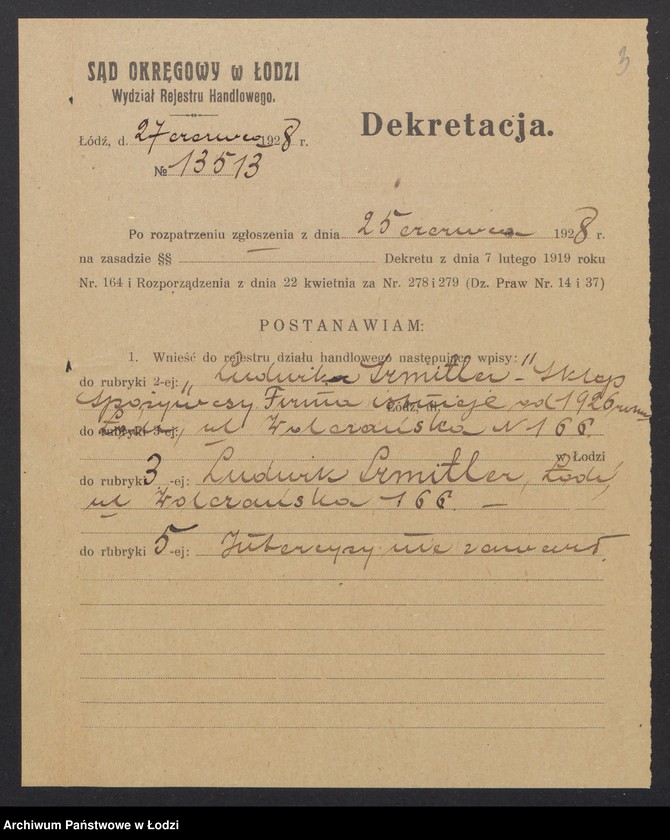 3
SĄD OKRĘGOWY w ŁODZI
Wydział Rejestru Handlowego.
Dekretacja.
Łódź, d. 27 czerwca 1928 r.
№ 13513
Po rozpatrzeniu zgłoszenia z dnia 25 czerwca 1928 r.
na zasadzie §§ — Dekretu z dnia 7 lutego 1919 roku
Nr. 164 i Rozporządzenia z dnia 22 kwietnia za Nr. 278 i 279 (Dz. Praw Nr. 14 i 37)
POSTANAWIAM:
1. Wnieść do rejestru działu handlowego następujące wpisy: "
do rubryki 2-ej: "Ludwik Szmitler - Sklep
Spożywczy Firma istnieje od 1926 roku
do rubryki 3-ej: ul Wolczańska N 166.
w Łodzi
do rubryki 3-ej: Ludwik Szmitler, Łódź,
ul Wolczańska 166. —
do rubryki 5-ej: Intercyzy nie zawarł.
Archiwum Państwowe w Łodzi